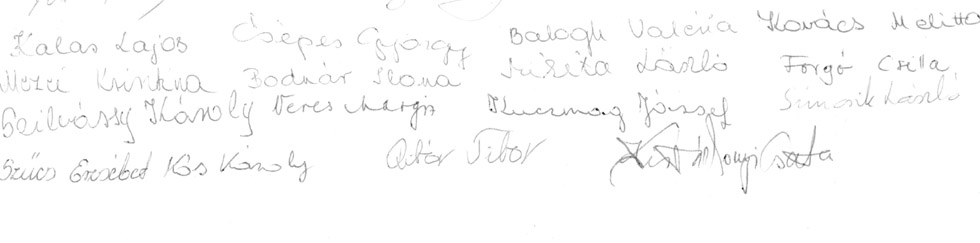 Kalas Lajos Csépes György Balogh Valéria Kovács Melitta
Mezei Krisztina Bodnár Ilona László Forgó Csilla
Szilvássy Károly Veres Margit Kuczmog József Simcsik László
Szűcs Erzsébet Kis Károly Tibor Csaba